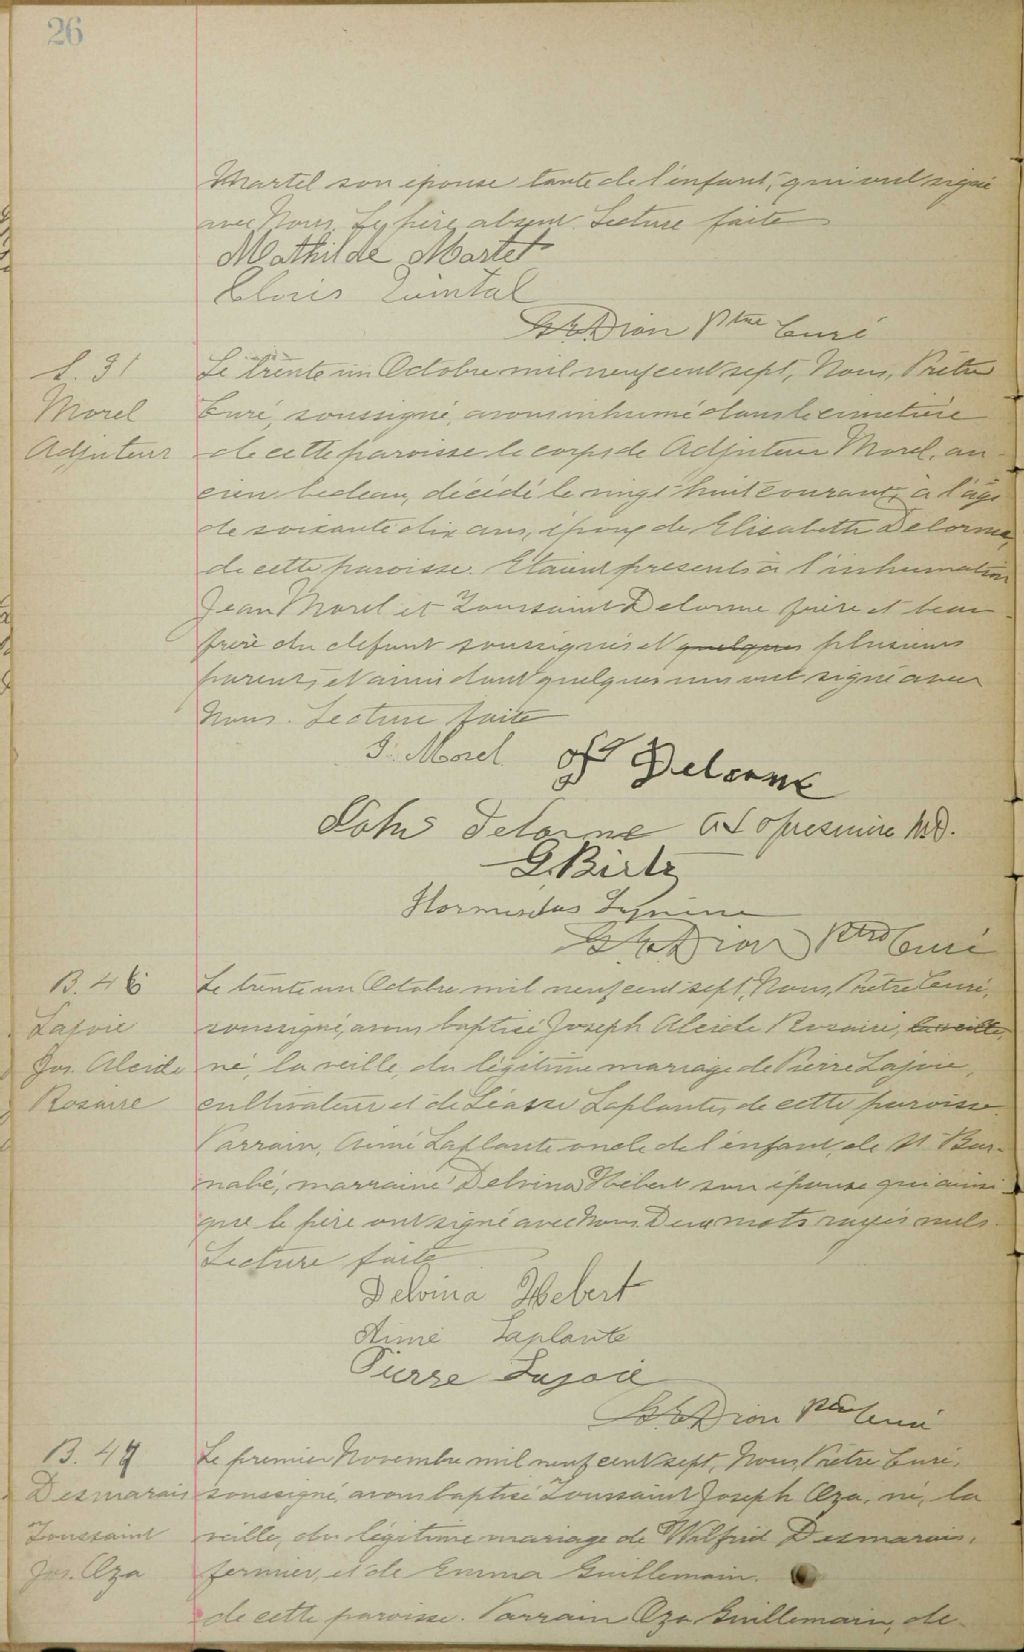 26
Martel son épouse tante de l'enfant, qui ont signé
avec Nous. Le père absent. Lecture faite
Mathilde Martel
Clovis Quintal
G.E. Dion Ptre Curé
S. 31
Morel
Adjuteur
Le trente un Octobre mil neuf cent sept, Nous, Prêtre
Curé, soussigné, avons inhumé dans le cimetière
de cette paroisse le corps de Adjuteur Morel, an-
cien bedeau, décédé le vingt huit courant, à l'âge
de soixante dix ans, époux de Elisabeth Delorme,
de cette paroisse. Etaient présents à l'inhumation
Jean Morel et Toussaint Delorme frère et beau-
frère du défunt soussignés et quelques plusieurs
parents et amis dont quelques uns ont signé avec
Nous. Lecture faite
J. Morel
Delorme
John Delorme
M.D.
G. Birtz
Hormisdas
G.E. Dion Ptre Curé
B. 46
Lajoie
Jos. Alcide
Rosaire
Le trente un Octobre mil neuf cent sept, Nous, Prêtre Curé,
soussigné, avons baptisé Joseph Alcide Rosaire, la veille,
né, la veille, du légitime mariage de Pierre Lajoie,
cultivateur et de Laplante, de cette paroisse.
Parrain, Aimé Laplante oncle de l'enfant, de St Bar-
nabé, marraine Delvina Hébert son épouse qui ainsi
que le père ont signé avec Nous. Deux mots rayés nuls.
Lecture faite
Delvina Hebert
Aimé Laplante
Pierre Lajoie
G.E. Dion Ptre Curé
B. 47
Desmarais
Toussaint
Jos. Oza
Le premier Novembre mil neuf cent sept, Nous, Prêtre Curé,
soussigné, avons baptisé Toussaint Joseph Oza, né, la
veille, du légitime mariage de Wilfrid Desmarais,
fermier, et de Emma Guillemain.
de cette paroisse. Parrain Oza Guillemain, de